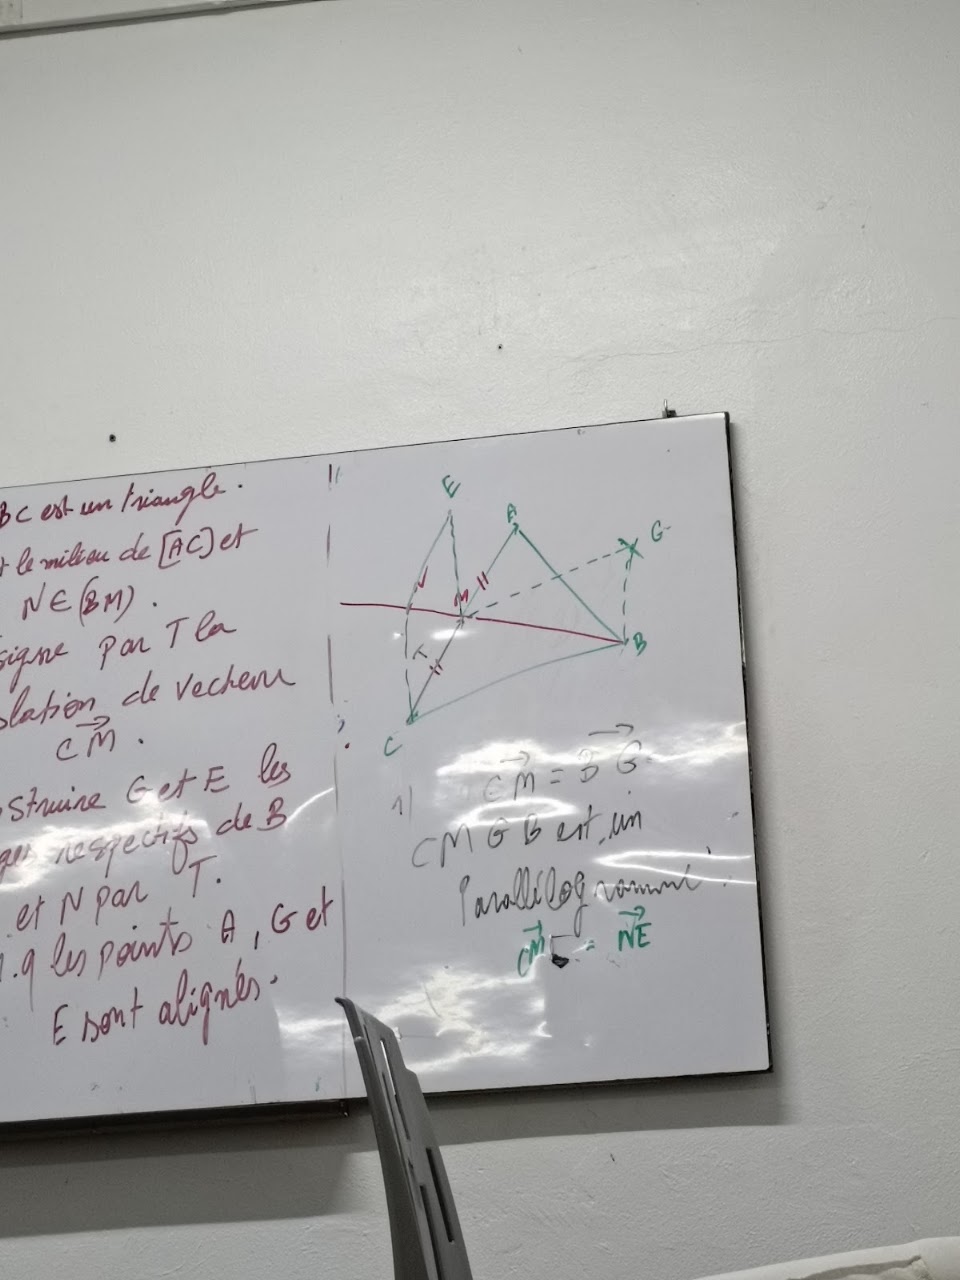 BC est un triangle.
t le milieu de [AC] et
N∈(BM).
signe par T la
slation de vecteur
CM.
struire G et E les
ges respectifs de B
et N par T.
.q les points A, G et
E sont alignés.
E
A
G
M
T
B
C
1) CM = BG
CMGB est un
Parallélogramme
CM = NE